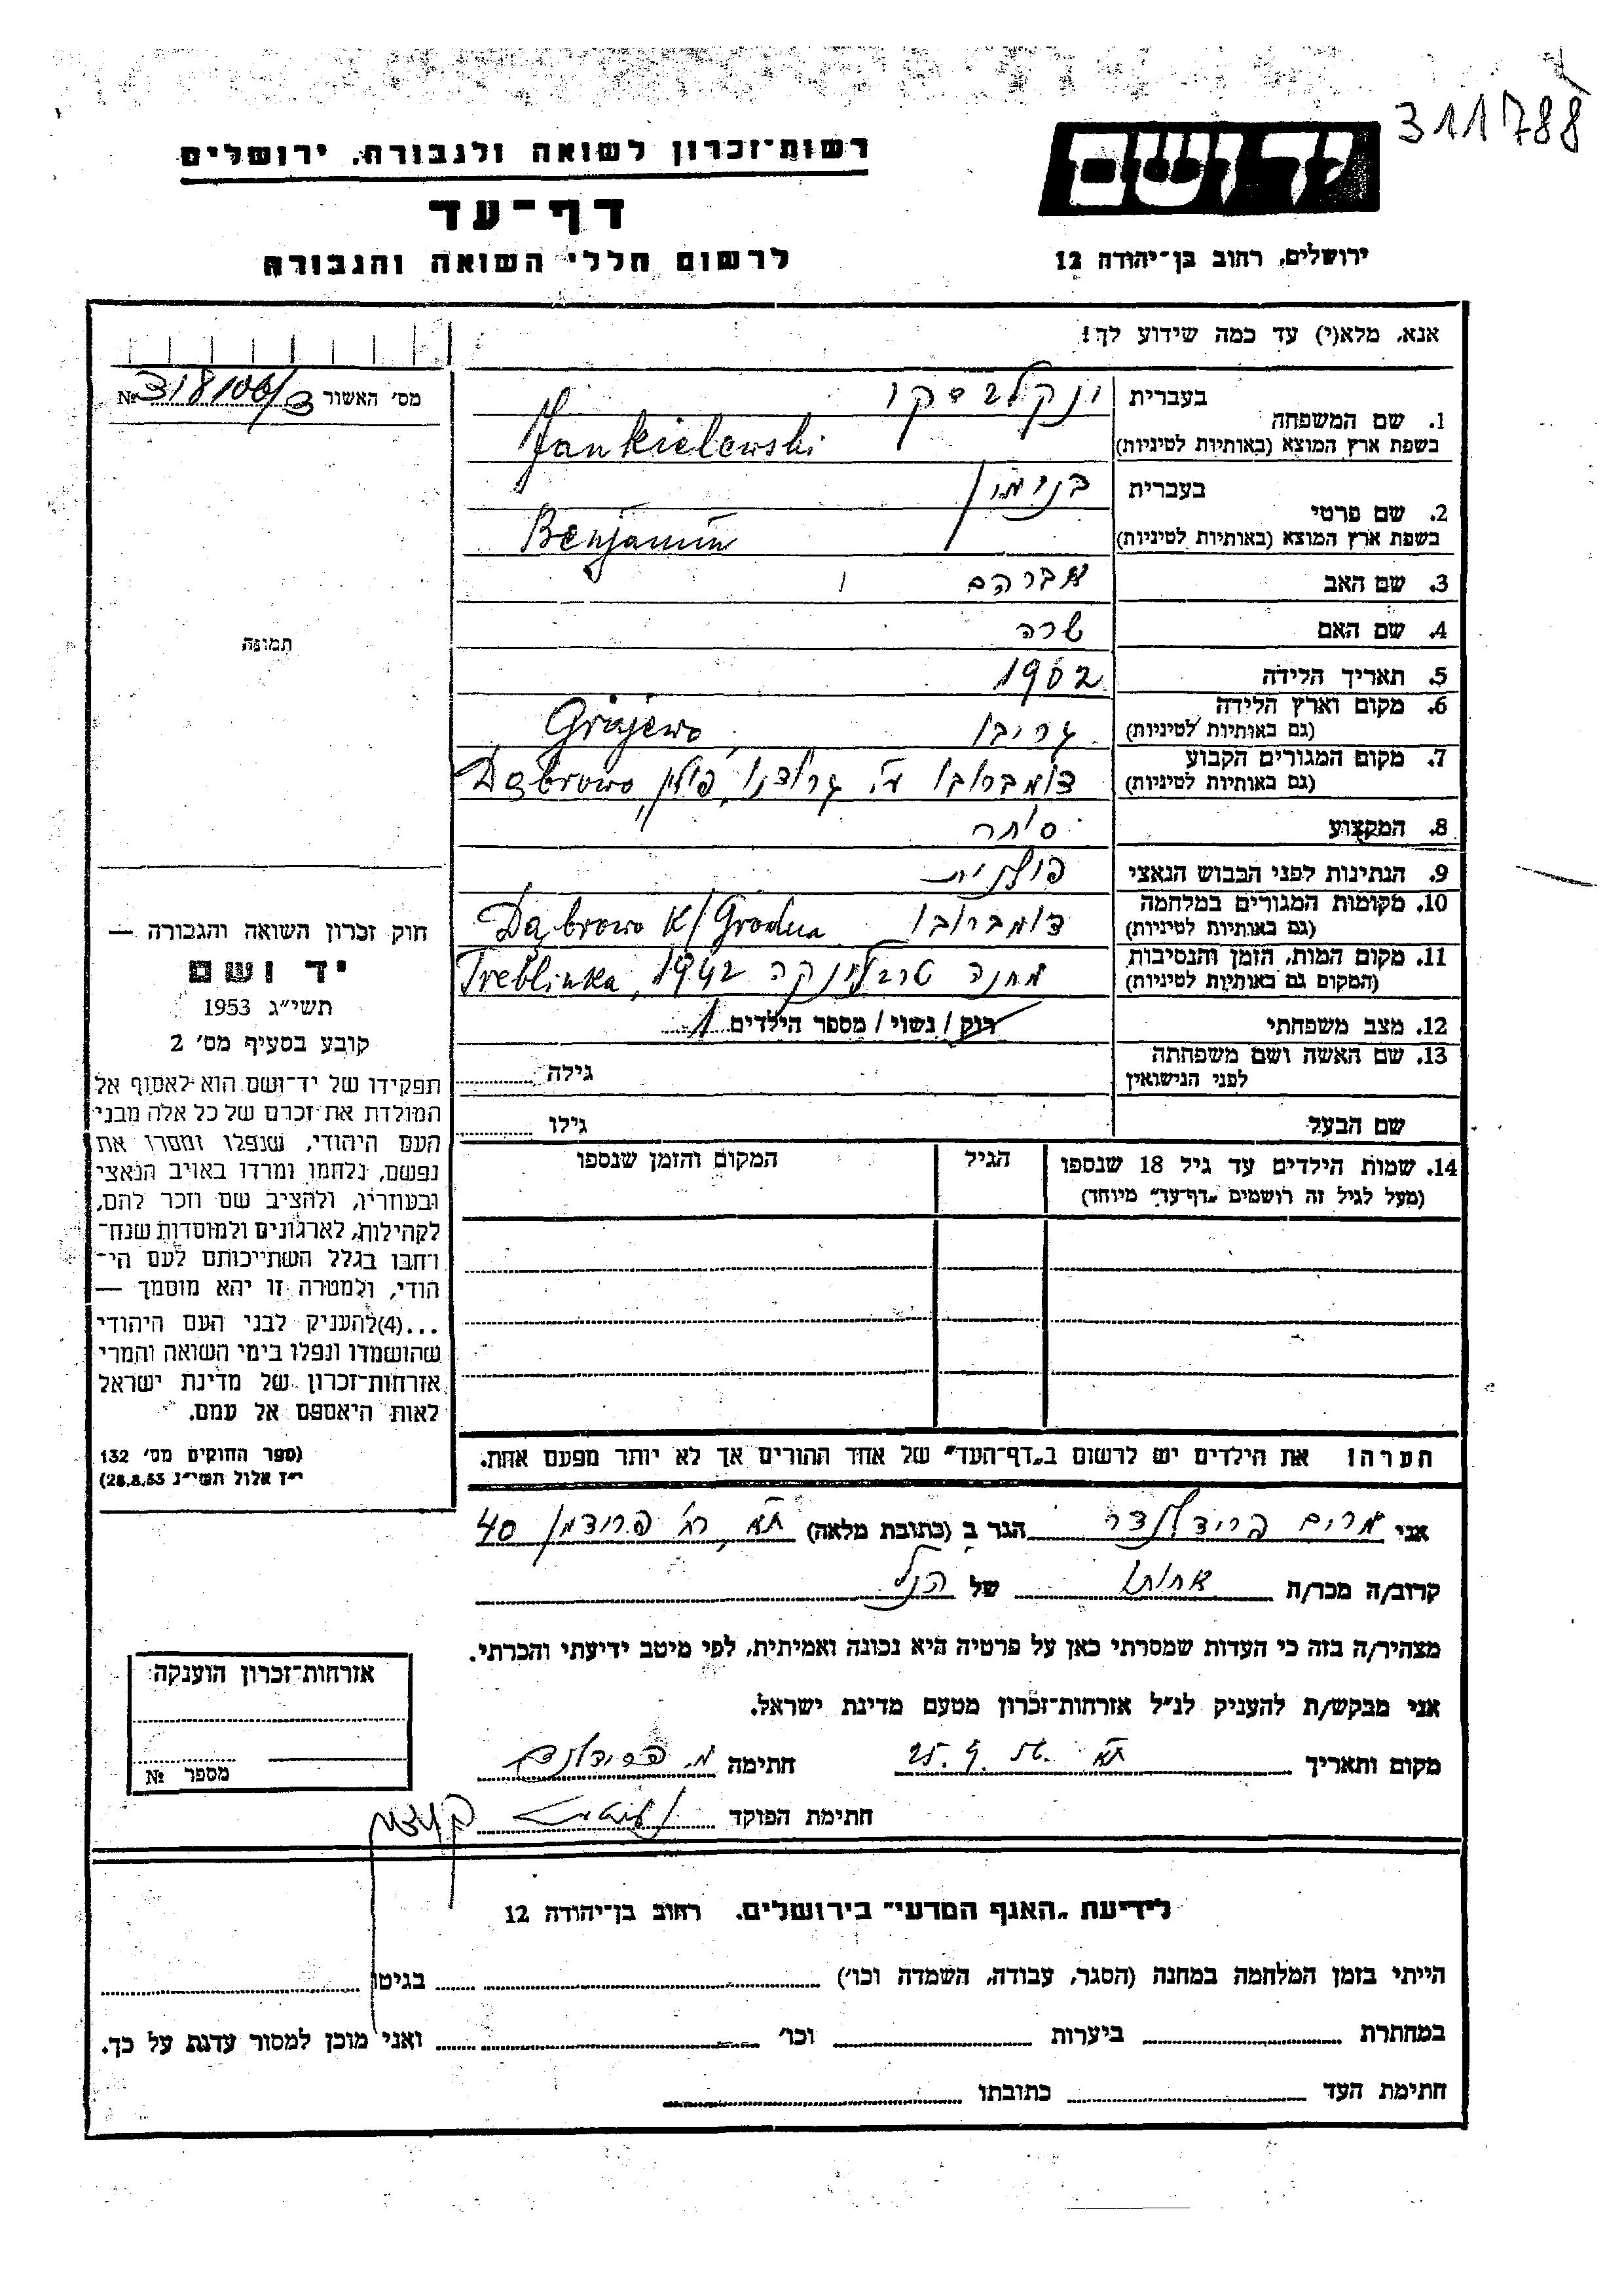 311788
רשות־זכרון לשואה ולגבורה, ירושלים
יד ושם
דף־עד
לרשום חללי השואה והגבורה
ירושלים, רחוב בן־יהודה 12
אנא, מלא(י) עד כמה שידוע לך!
מס׳ האשור № 318106/3
תמונה
1. שם המשפחה בעברית ינקלבסקי
בשפת ארץ המוצא (באותיות לטיניות) Jankielewski
2. שם פרטי בעברית בנימין
בשפת ארץ המוצא (באותיות לטיניות) Benjamin
3. שם האב אברהם
4. שם האם שרה
5. תאריך הלידה 1902
6. מקום וארץ הלידה
(גם באותיות לטיניות) גריבו Grajewo
7. מקום המגורים הקבוע
(גם באותיות לטיניות) דומברובו ע. גרודנו, פולין, Dąbrowo
8. המקצוע סוחר
9. הנתינות לפני הכבוש הנאצי פולנית
10. מקומות המגורים במלחמה
(גם באותיות לטיניות) דומברובו Dąbrowo K/Grodna
11. מקום המות, הזמן והנסיבות
(המקום גם באותיות לטיניות) מחנה טרבלינקה 1942 Treblinka,
12. מצב משפחתי רוק / נשוי / מספר הילדים 1
13. שם האשה ושם משפחתה
לפני הנישואין גילה
שם הבעל גילו
14. שמות הילדים עד גיל 18 שנספו
(מעל לגיל זה רושמים „דף־עד״ מיוחד)
הגיל
המקום והזמן שנספו
חוק זכרון השואה והגבורה —
יד ושם
תשי״ג 1953
קובע בסעיף מס׳ 2
תפקידו של יד־ושם הוא לאסוף אל
המולדת את זכרם של כל אלה מבני
העם היהודי, שנפלו ומסרו את
נפשם, נלחמו ומרדו באויב הנאצי
ובעוזריו, ולהציב שם וזכר להם,
לקהילות, לארגונים ולמוסדות שנח־
רבו בגלל השתייכותם לעם הי־
הודי, ולמטרה זו יהא מוסמך —
...(4) להעניק לבני העם היהודי
שהושמדו ונפלו בימי השואה והמרי
אזרחות־זכרון של מדינת ישראל
לאות היאספם אל עמם.
(ספר החוקים מס׳ 132
י״ז אלול תשי״ג 28.8.53)
הערה: את הילדים יש לרשום ב„דף־העד״ של אחד ההורים אך לא יותר מפעם אחת.
אני מרים פרידלנדר הגר ב (כתובת מלאה) ת״א, רח׳ פרידמן 40
קרוב/ה מכר/ה אחותו של הנ״ל
מצהיר/ה בזה כי העדות שמסרתי כאן על פרטיה היא נכונה ואמיתית, לפי מיטב ידיעתי והכרתי.
אני מבקש/ת להעניק לנ״ל אזרחות־זכרון מטעם מדינת ישראל.
מקום ותאריך ת״א 25.9.56 חתימה מ. פרידלנדר
חתימת הפוקד
אזרחות־זכרון הוענקה
מספר №
לידיעת „האגף המדעי״ בירושלים, רחוב בן־יהודה 12
הייתי בזמן המלחמה במחנה (הסגר, עבודה, השמדה וכו׳) בגיטו
במחתרת ביערות וכו׳ ואני מוכן למסור עדות על כך.
חתימת העד כתובתו